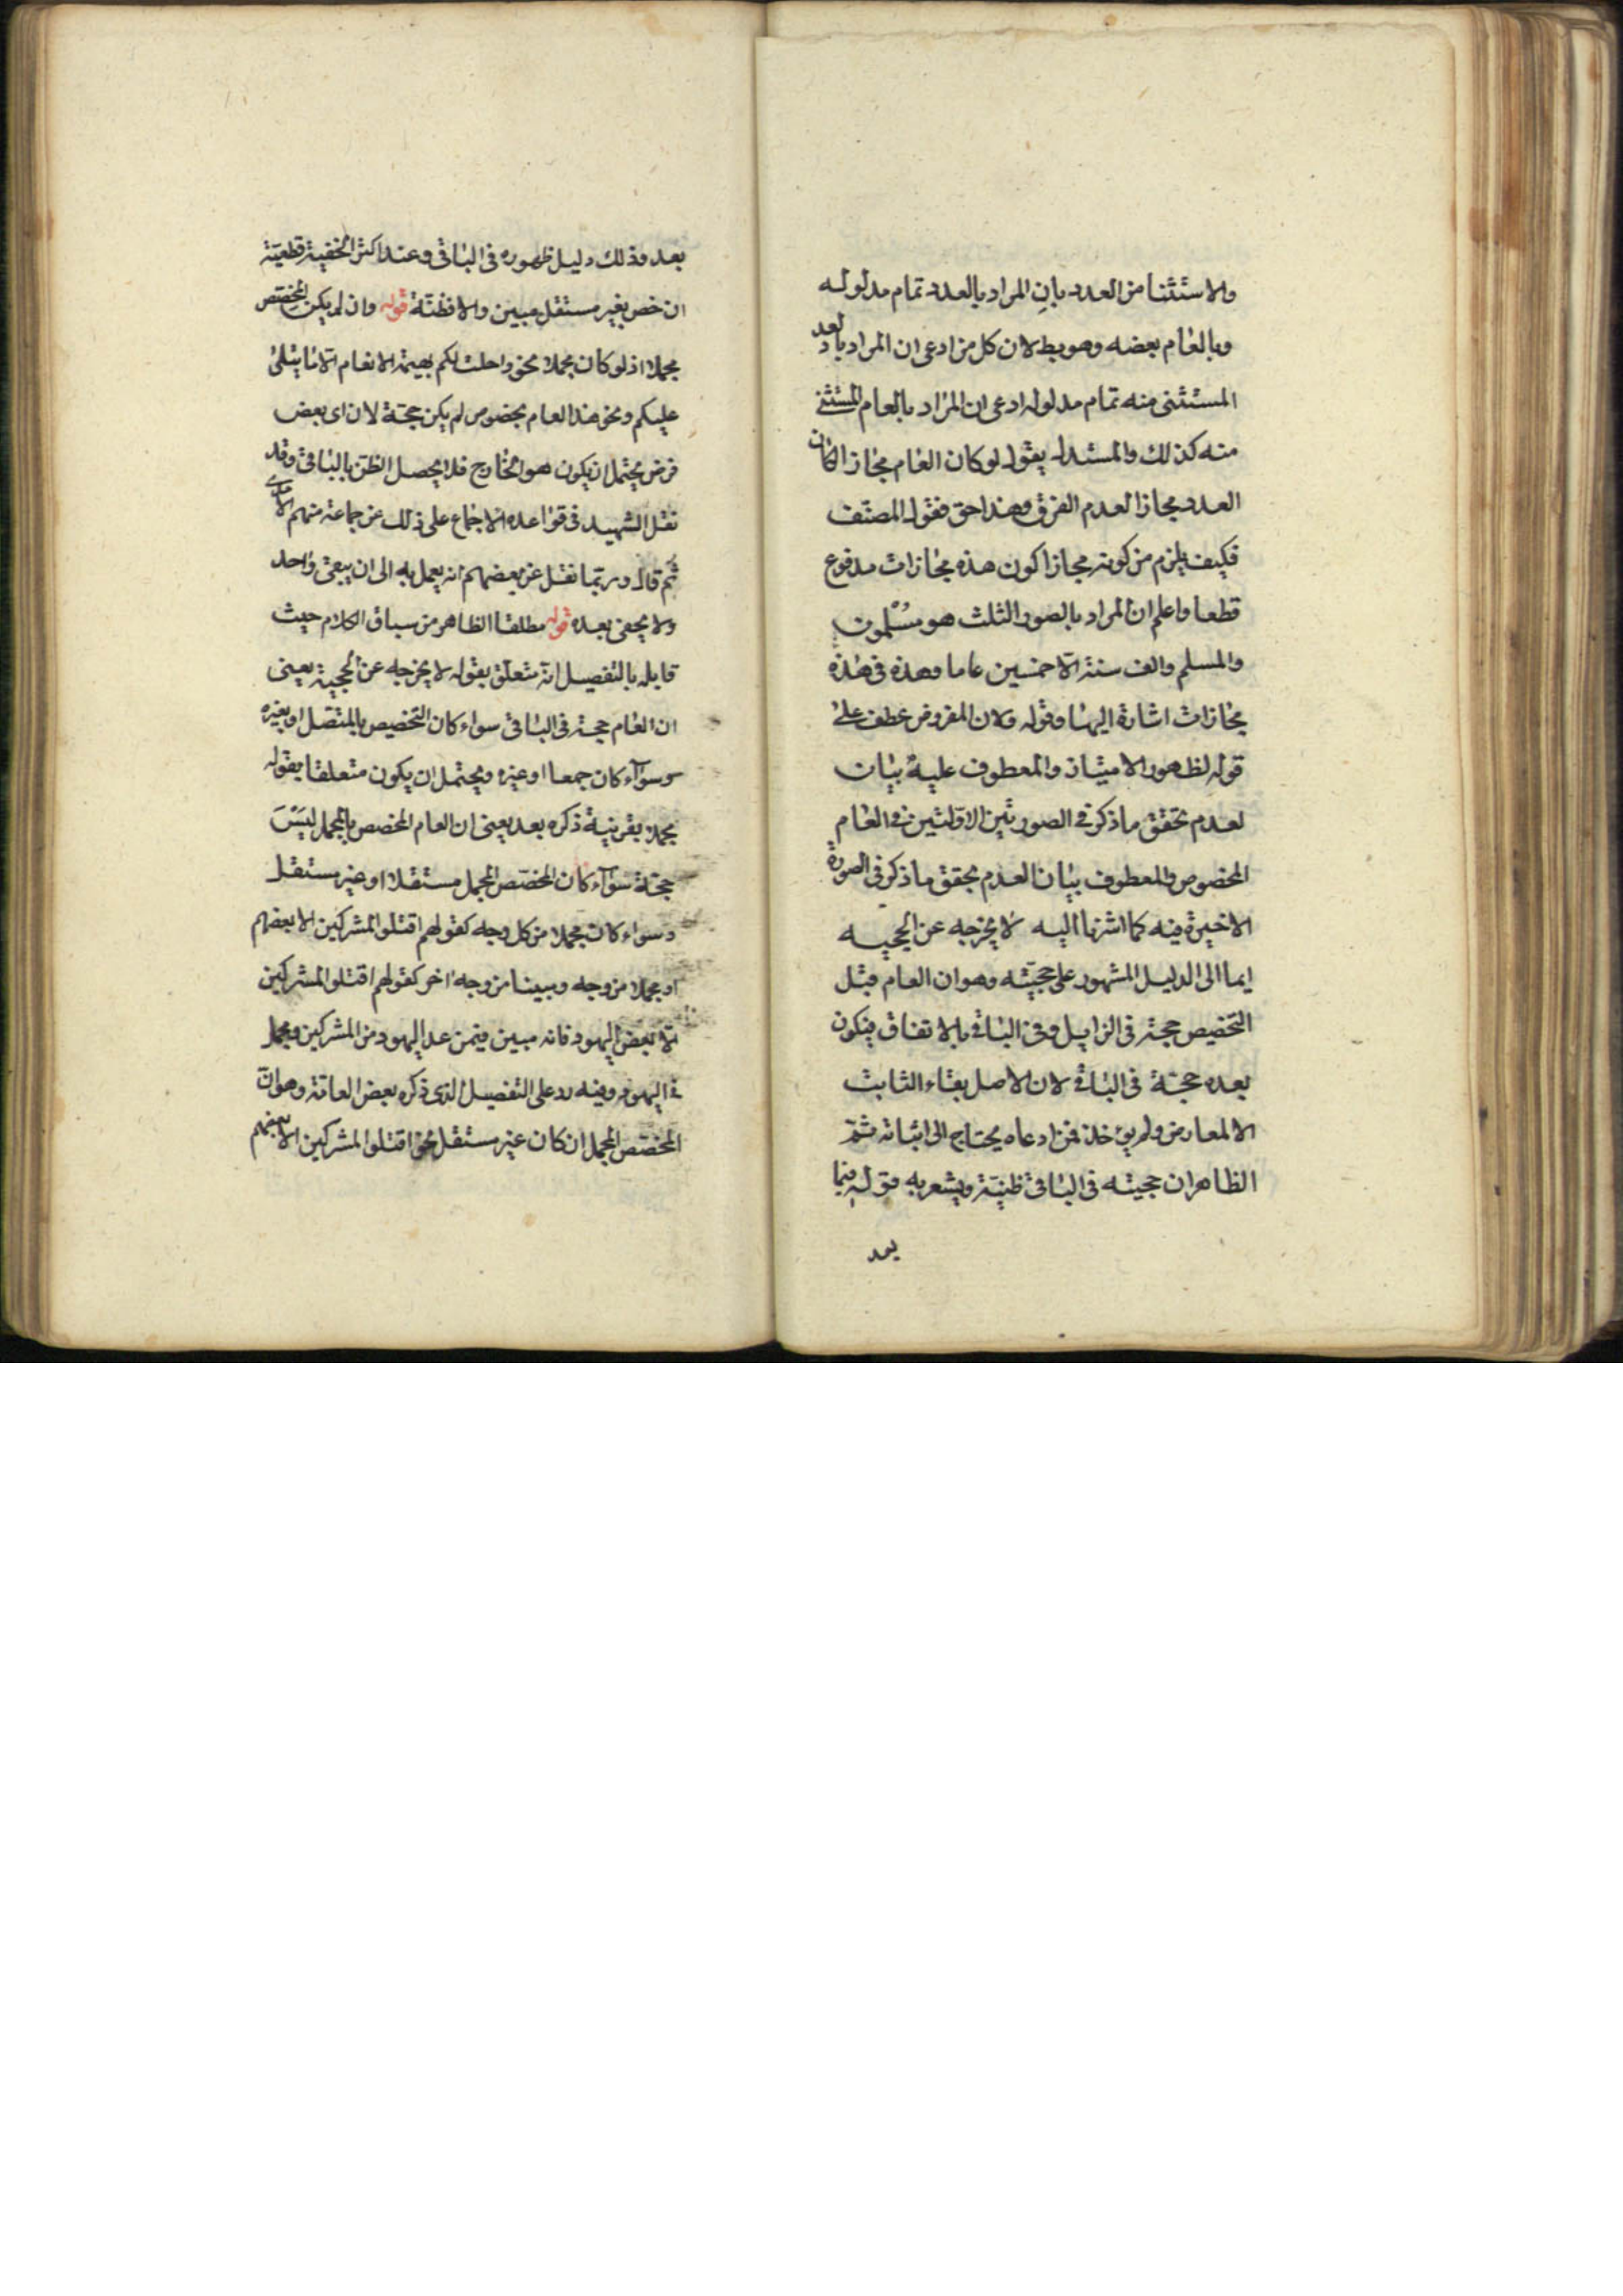 والاستثنا من العدد بان المراد بالعدد تمام مدلوله
وبالعام بعضه وهو بط لان كل من ادعى ان المراد بالعدد
المستثنى منه تمام مدلوله ادعى ان المراد بالعام المستثنى
منه كذلك والمستدل يقول لو كان العام مجازا لكان
العدد مجازا لعدم الفرق وهذا حق فقول المصنف
فكيف يلزم من كونه مجازا كون هذه مجازات مدفوع
قطعا واعلم ان المراد بالصور الثلث هو مسلمون
والمسلم والف سنة الا خمسين عاما وهذه في هذه
مجازات اشارة اليها وقوله ولان المفروض عطف على
قوله لظهور الامتياز والمعطوف عليه بيان
لعدم تحقق ما ذكر في الصورتين الاولتين في العام
المخصوص والمعطوف بيان لعدم تحقق ما ذكر في الصورة
الاخيرة فيه كما اشرنا اليه لا يخرجه عن الحجيه
ايما الى الدليل المشهور على حجيته وهو ان العام قبل
التخصيص حجة في الزايل وفي الباقي بالاتفاق فيكون
بعده حجة في الباقي لان الاصل بقاء الثابت
الا لمعارض ولم يؤخذ فمن ادعاه يحتاج الى اثباته ثم
الظاهر ان حجيته في الباقي ظنية ويشعر به قوله فيما
بعد
بعد وذلك دليل ظهوره في الباقي وعند اكثر الحنفية قطعية
ان خص بغير مستقل مبين والا فظنة قوله وان لم يكن المخصص
مجملا اذ لو كان مجملا نحو واحلت لكم بهيمة الانعام الا ما يتلى
عليكم ونحو هذا العام مخصوص لم يكن حجة لان اى بعض
فرض يحتمل ان يكون هو المخارج فلا يحصل الظن بالباقي وقد
نقل الشهيد في قواعده الاجماع على ذلك عن جماعة منهم الامدى
ثم قال وربما نقل عن بعضهم انه يعمل به الى ان يبقى واحد
ولا يخفى بعده قوله مطلقا الظاهر من سياق الكلام حيث
قابله بالتفصيل انه متعلق بقوله لا يخرجه عن الحجية يعنى
ان العام حجة في الباقي سواء كان التخصيص بالمتصل او بغيره
وسواء كان جمعا او غيره ويحتمل ان يكون متعلقا بقوله
مجملا بقرينة ذكره بعد يعنى ان العام المخصص بالمجمل ليس
حجة سواء كان المخصص المجمل مستقلا او غير مستقل
وسواء كان مجملا من كل وجه كقولهم اقتلو المشركين الا بعضهم
او مجملا من وجه ومبينا من وجه اخر كقولهم اقتلو المشركين
الا بعض اليهود فانه مبين فيمن عد اليهود من المشركين ومجمل
في اليهود وفيه رد على التفصيل الذى ذكره بعض العامة وهو ان
المخصص المجمل ان كان غير مستقل نحو اقتلو المشركين الا بعضهم